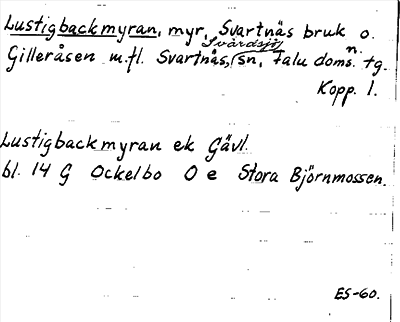 Lustigbackmyran, myr, Svartnäs bruk o.
Gilleråsen m.fl. Svartnäs, Svärdsjö sn, Falu doms. n. tg.
Kopp. l.
Lustigbackmyran ek Gävl.
bl. 14 G Ockelbo O e Stora Björnmossen.
ES-60.